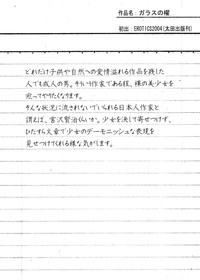 作品名：ガラスの檻
初出：EROTICS2004(太田出版刊)
どれだけ子供や自然への愛情溢れる作品を残した
人でも成人の男。そういう作家である程、裸の美少女を
迫ってやりたくなります。
そんな状況に流されないでいられる日本人作家と
謂えば、宮沢賢治くらいか。少女を決して寄せつけず、
ひたすら文章で少女のデーモニッシュな表現を
見せつけてくれる様な気がします。